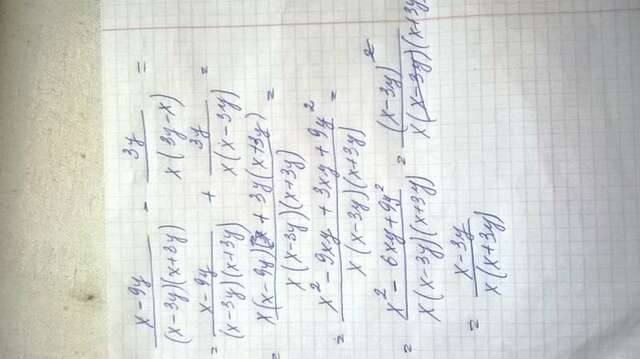 x-9y/(x-3y)(x+3y) - 3y/x(3y-x) =
= x-9y/(x-3y)(x+3y) + 3y/x(x-3y) =
= x(x-9y) + 3y(x+3y)/x(x-3y)(x+3y) =
= x² - 9xy + 3xy + 9y²/x(x-3y)(x+3y) =
= x² - 6xy + 9y²/x(x-3y)(x+3y) = (x-3y)²/x(x-3y)(x+3y
= x-3y/x(x+3y)